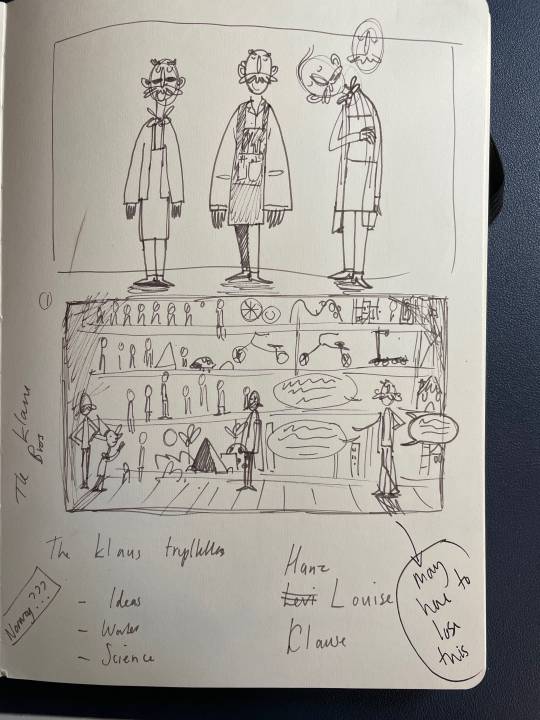 1
The Klaus
Bros
The Klaus
- Ideas
- Works
- Science
Norway???
Hanz
Levi Louise
Klause
may
have to
lose
this